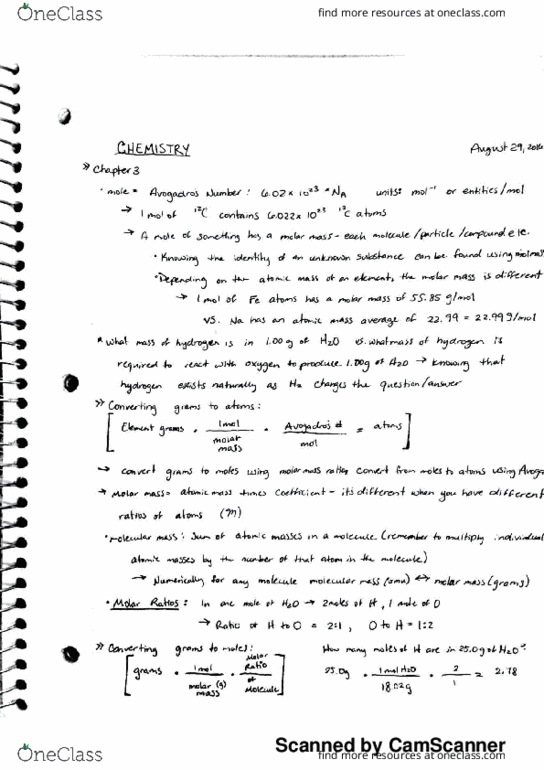 OneClass
find more resources at oneclass.com
CHEMISTRY
August 29, 2016
» Chapter 3
• mole = Avogadro's Number: 6.02 x 10²³ = NA units: mol⁻¹ or entities/mol
→ 1 mol of ¹²C contains 6.022 x 10²³ ¹²C atoms
→ A mole of something has a molar mass - each molecule/particle/compound etc.
• Knowing the identity of an unknown substance can be found using
• Depending on the atomic mass of an element, the molar mass is different
→ 1 mol of Fe atoms has a molar mass of 55.85 g/mol
VS. Na has an atomic mass average of 22.99 = 22.99 g/mol
* What mass of hydrogen is in 1.00g of H₂O vs. what mass of hydrogen is
required to react with oxygen to produce 1.00g of H₂O → Knowing that
hydrogen exists naturally as H₂ changes the question/answer
» Converting grams to atoms:
[Element grams • 1mol/molar mass • Avogadro's #/mol = atoms]
→ convert grams to moles using molar mass ratio, convert from moles to atoms using Avoga
→ Molar mass = atomic mass times coefficient - its different when you have different
ratios of atoms (M)
• molecular mass: Sum of atomic masses in a molecule (remember to multiply individual
atomic masses by the number of that atom in the molecule)
→ Numerically for any molecule molecular mass (amu) ↔ molar mass (grams)
• Molar Ratios: In one mole of H₂O → 2 moles of H, 1 mole of O
→ Ratio of H to O = 2:1, O to H = 1:2
» Converting grams to moles: How many moles of H are in 25.0g of H₂O?
[grams • 1mol/molar (g) mass • Molar Ratio/of Molecule] 25.0g • 1 mol H₂O/18.02g • 2/1 = 2.78
Scanned by CamScanner
OneClass
find more resources at oneclass.com